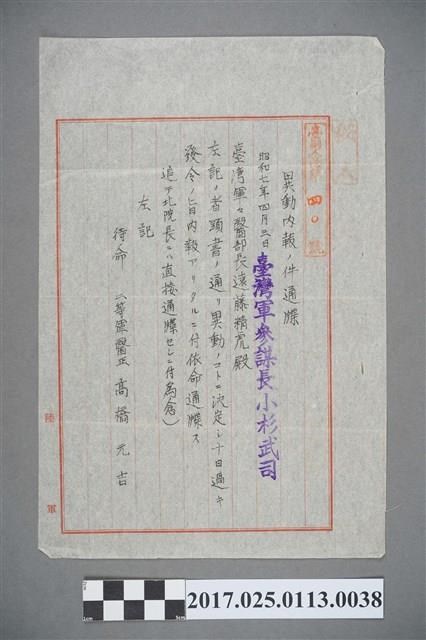 四〇號
異動内報ノ件通牒
昭和七年四月三日
臺灣軍參謀長小杉武司
臺灣軍々醫部長遠藤精虎殿
左記ノ者頭書ノ通リ異動ノコトニ決定シ十日過キ
發令ノ旨内報アリタルニ付依命通牒ス
追テ北院長ニハ直接通牒セシニ付為念)
左記
待命 二等軍醫正 高橋元吉
陸軍
2017.025.0113.0038
1cm
5cm